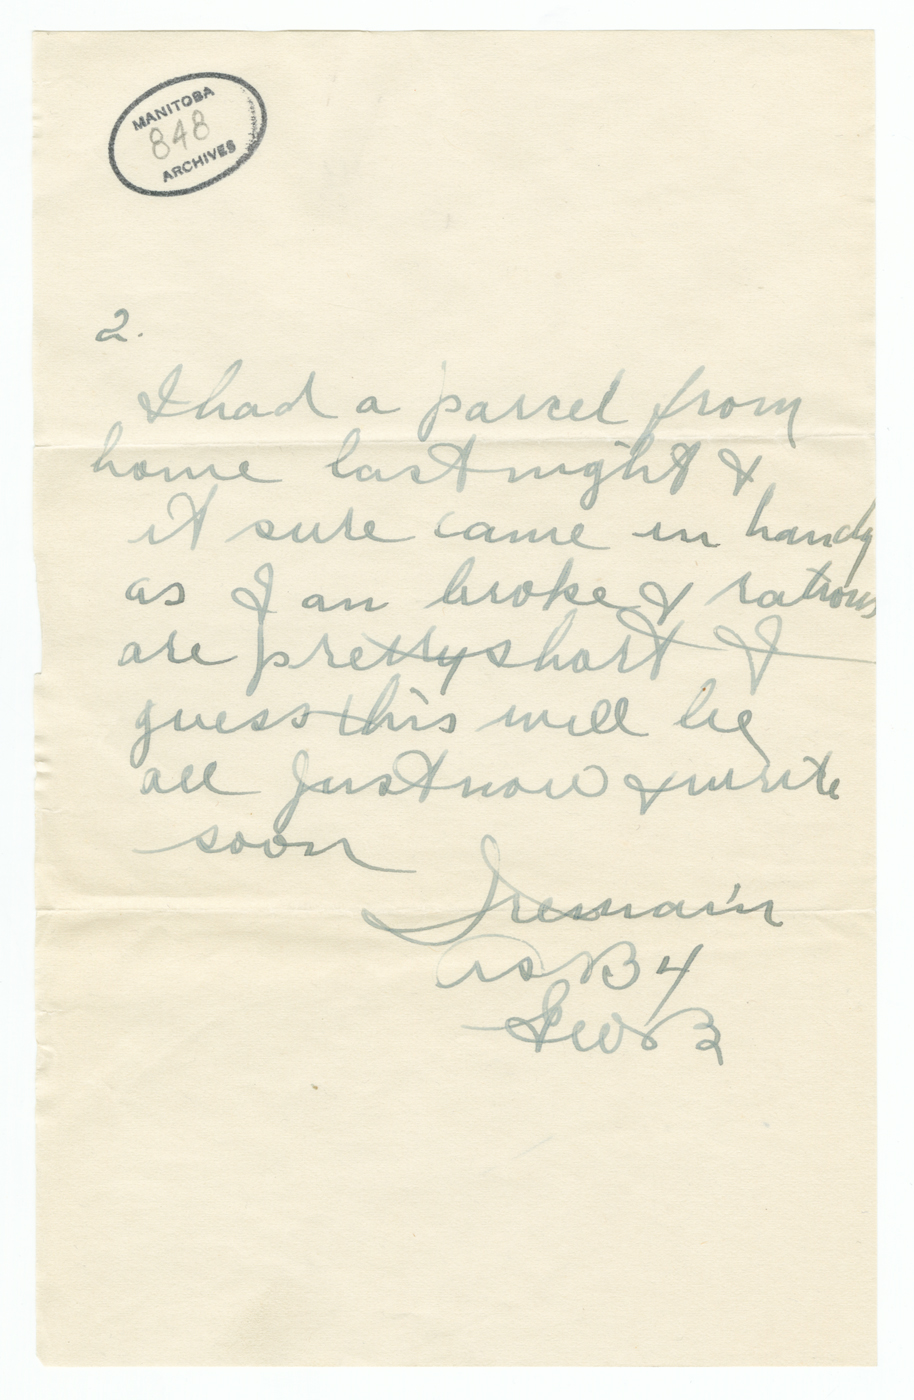 MANITOBA
848
ARCHIVES
2.
I had a parcel from
home last night &
it sure came in handy
as I an broke & rations
are pretty short I
guess this will be
all just now & write
soon
I remain
as B4
GWB